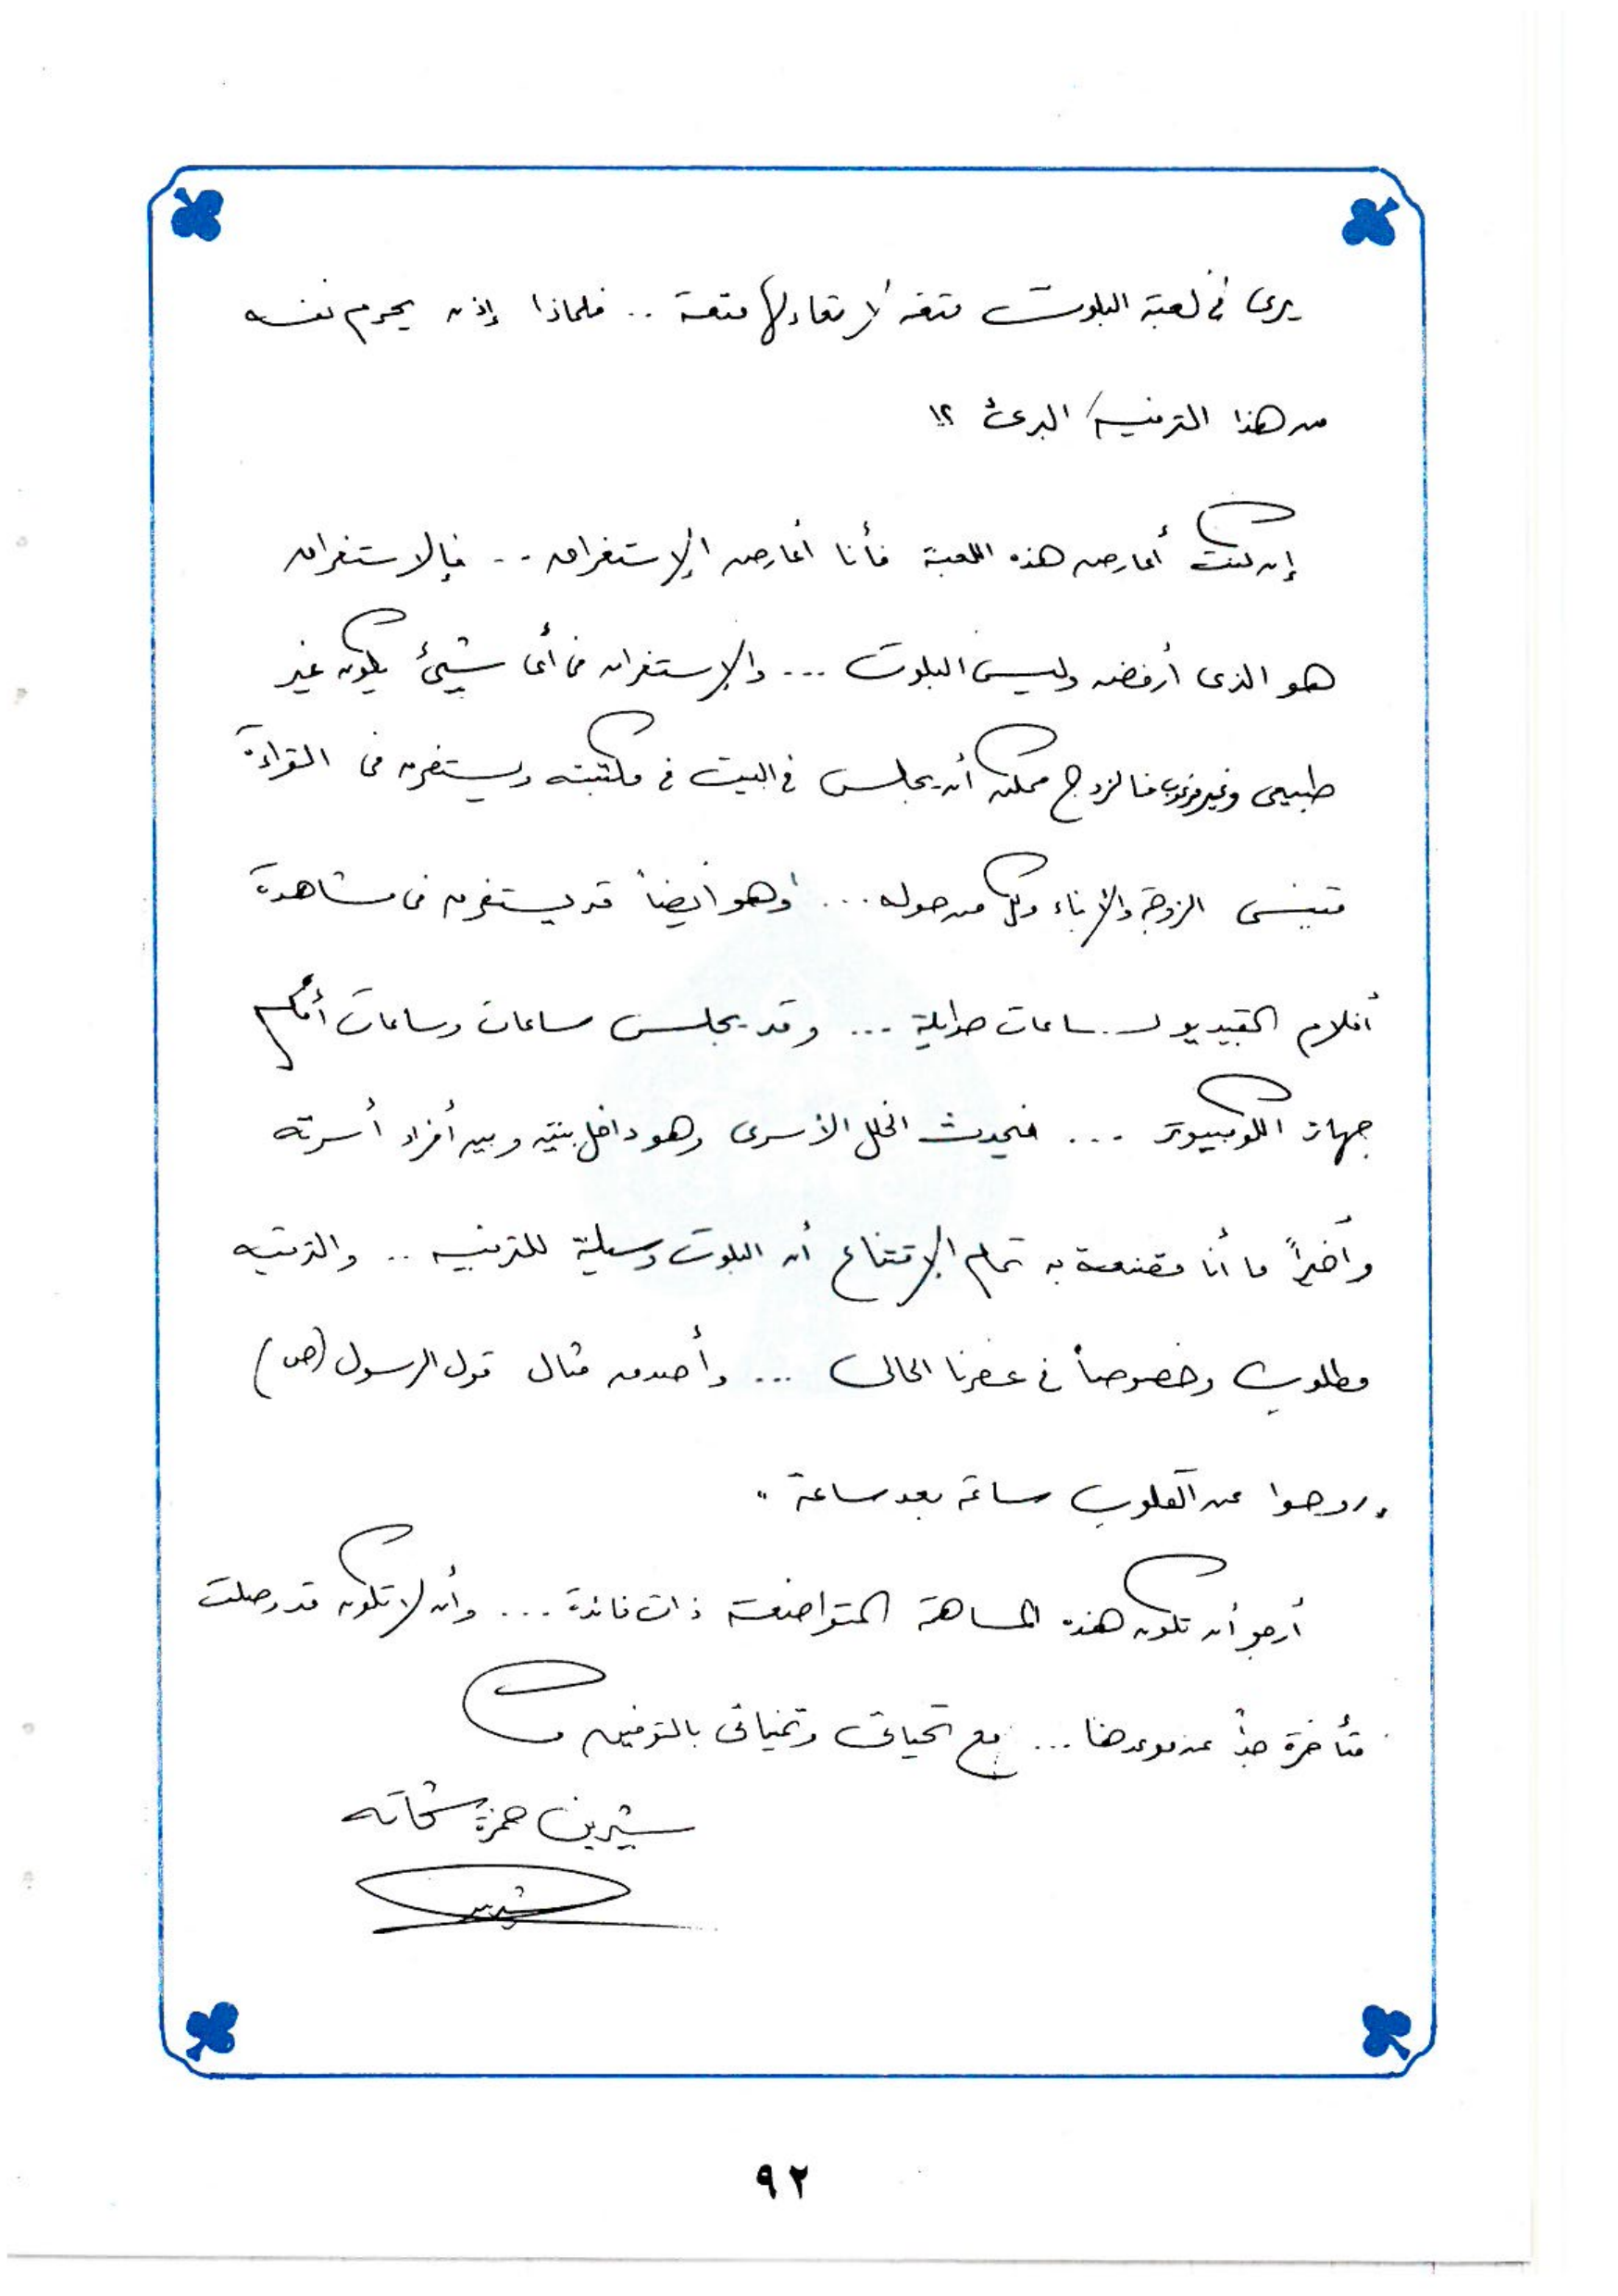 يرى في لعبة البلوت متعة لا تعادلها متعة .. فلماذا إذن يحرم نفسه
من هذا الترفيه البرئ ؟!
إن كنت أعارض هذه اللعبة فأنا أعارض الإستغراق .. فالاستغراق
هو الذى أرفضه وليس البلوت ... والإستغراق فى أى شيئ يكون غير
طبيعى وغير مرغوب فالزوج ممكن أن يجلس في البيت في مكتبته ويستغرق فى القراءة
فينسى الزوجة والأبناء وكل من حوله ... وهو أيضاً قد يستغرق فى مشاهدة
أفلام الڤيديو لـ ساعات طويلة ... وقد يجلس ساعات وساعات أمام
جهاز الكومبيوتر ... فيحدث الخلل الأسرى وهو داخل بيته وبين أفراد أسرته
وأخيراً ما أنا مقتنعة به تمام الإقتناع أن البلوت وسيلة للترفيه .. والترفيه
مطلوب وخصوصاً في عصرنا الحالى ... وأصدق مثال قول الرسول (ص)
" روحوا عن القلوب ساعة بعد ساعة "
أرجو أن تكون هذه المساهمة المتواضعة ذات فائدة ... وأن لا تكون قد وصلت
متأخرة جداً عن موعدها ... مع تحياتى وتمنياتى بالتوفيق
شيرين حمزة شحاته
شيرين
٩٢